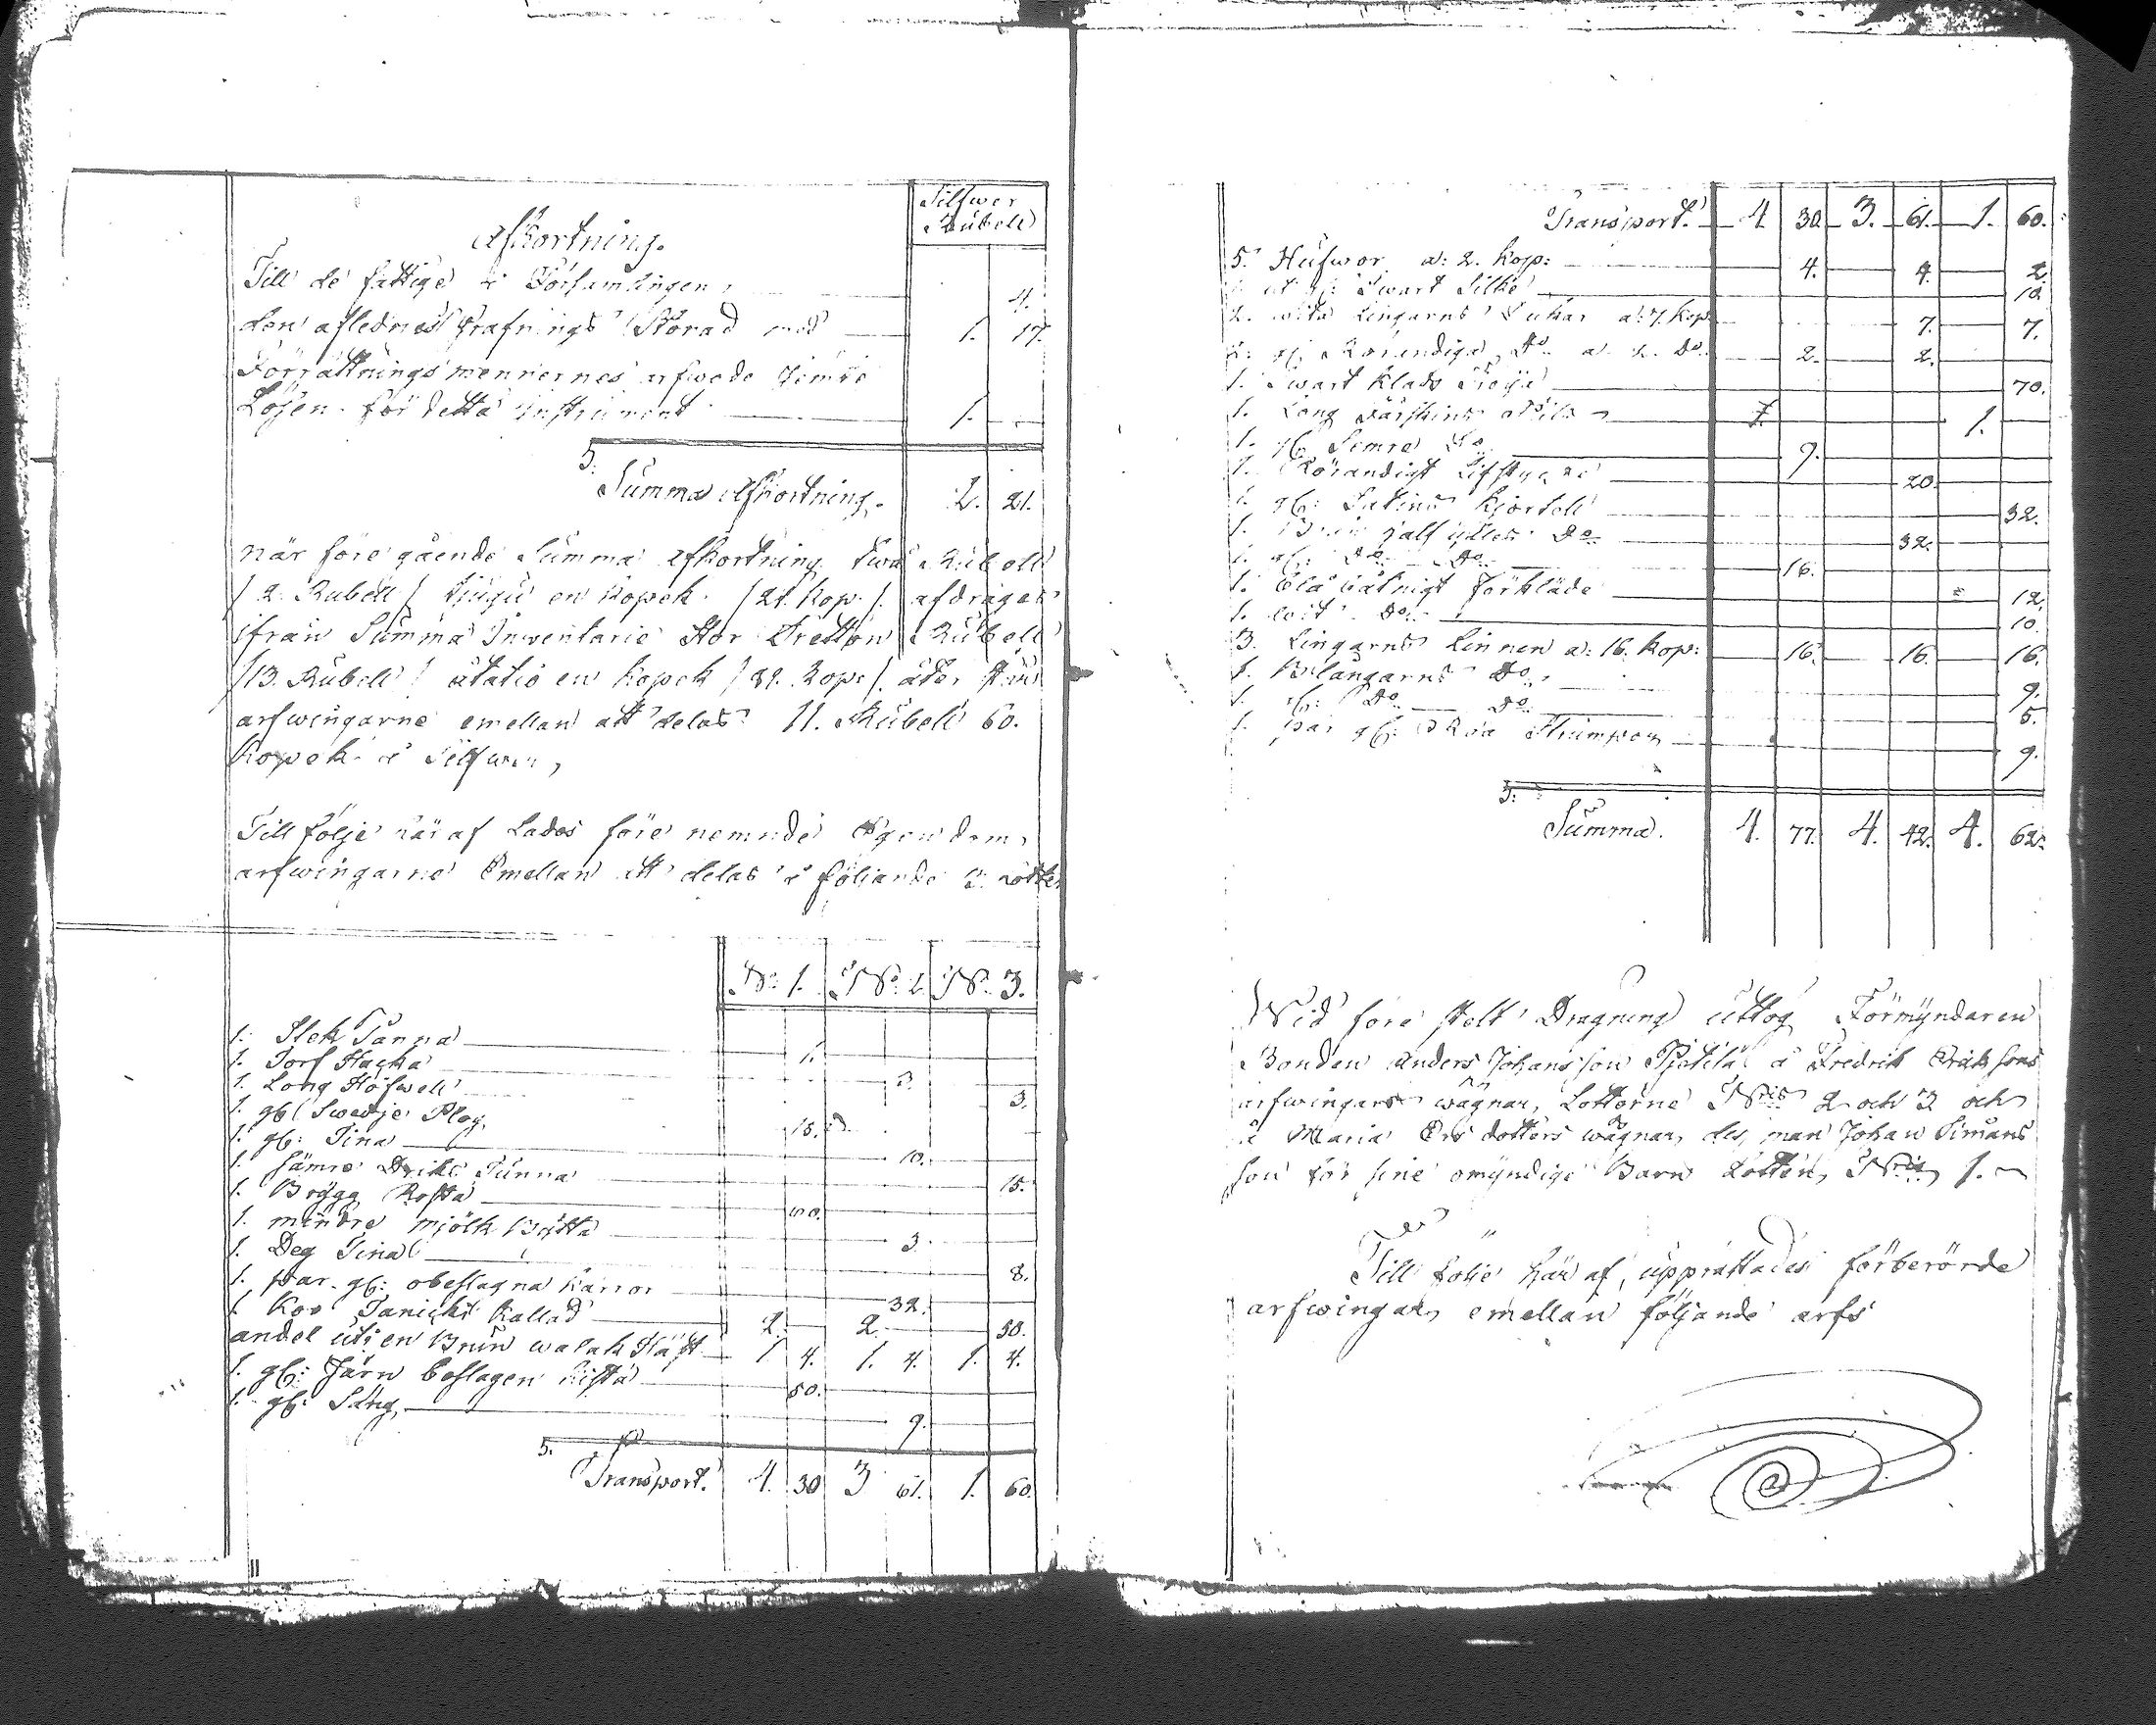 Silfwer
Rubell
Afkortning.
Till de fattige i Församlingen 4.
den aflednes Grafnings Kostnad med 1. 17.
Förrättnings mennernes arfwode jemte
Lösen för detta Instrument 1. –
S:
Summa Afkortning. 2. 21.
När före gående Summa Afkortning twå Rubell
/2. Rubell/ tjugu en kopek /21. kop:/. afdrages
ifrån Summa Inventarie Stor Tretton Rubell
/13. Rubell/ åtatio en kopek /81. kop:/. åter står
arfwingarne emellan att delas 11. Rubell 60.
kopek i Silfwer,
Till följe här af Lades före nemnde Egendom,
arfwingarne Emellan att delas i följande 3. Lotter
No: 1. No: 2. No: 3.
1. Stek Panna 1.
1. Torf Hacka 3.
1. Long Höfwell 3.
1. gl: Swedje Plog 15.
1. gl: Tina 10.
1. sämre Dricks Tunna 15.
1. Brygg Rosta 60.
1. mindre mjölk Bytta 3.
1. Deg Tina 8.
1. par. gl: obeslagna kärror 32.
1. Koo Kallad 2. – 2. – 50.
andel uti en Brun walak Häst 1. 4. 1. 4. 1. 4.
1. gl: Järn beslagen kista 50.
1. gl: Säng 9.
S.
Transport. 4. 30 3 61. 1. 60.
Transport. 4 30. 3. 61. 1. 60.
5. Hufwor a: 2. kop: 4. 4. 2.
1. gl: Swart Silke 10.
2. wita Lingarns Dukar a: 7. kop: 7. 7.
2. gl: Do a 2. Do 2. 2.
1. Swart Kläds Tröja 70.
1. Long Fårskins 1.
1. gl: Semre Do 9.
1. Rörandigt Lifstycke 20.
1. gl: Satins Kjortell 32.
1. Brun half ylles Do 32.
1. gl: Do Do 16.
1. Blå Förkläde 12.
1. wit Do 10.
3. Lingarns Linnen a: 16. kop: 16. 16. 16.
1. Blångarns Do 9.
1. gl: Do Do 5.
1. par gl: Strumpor 9.
S:
Summa. 4. 77. 4. 42. 4. 62.
Wid före stelt Dragning uttog Förmyndaren
Bonden Anders Johansson å Fredrik Erikssons
arfwingars wägnar, Lotterne Nris 2 och 3 och
å Maria Ers dotters wägnar, des man Johan Simons
son för sine omyndige Barn Lotten, No 1.
Till följe här af, upprättades förberörde
arfwingar, emellan följande arfs